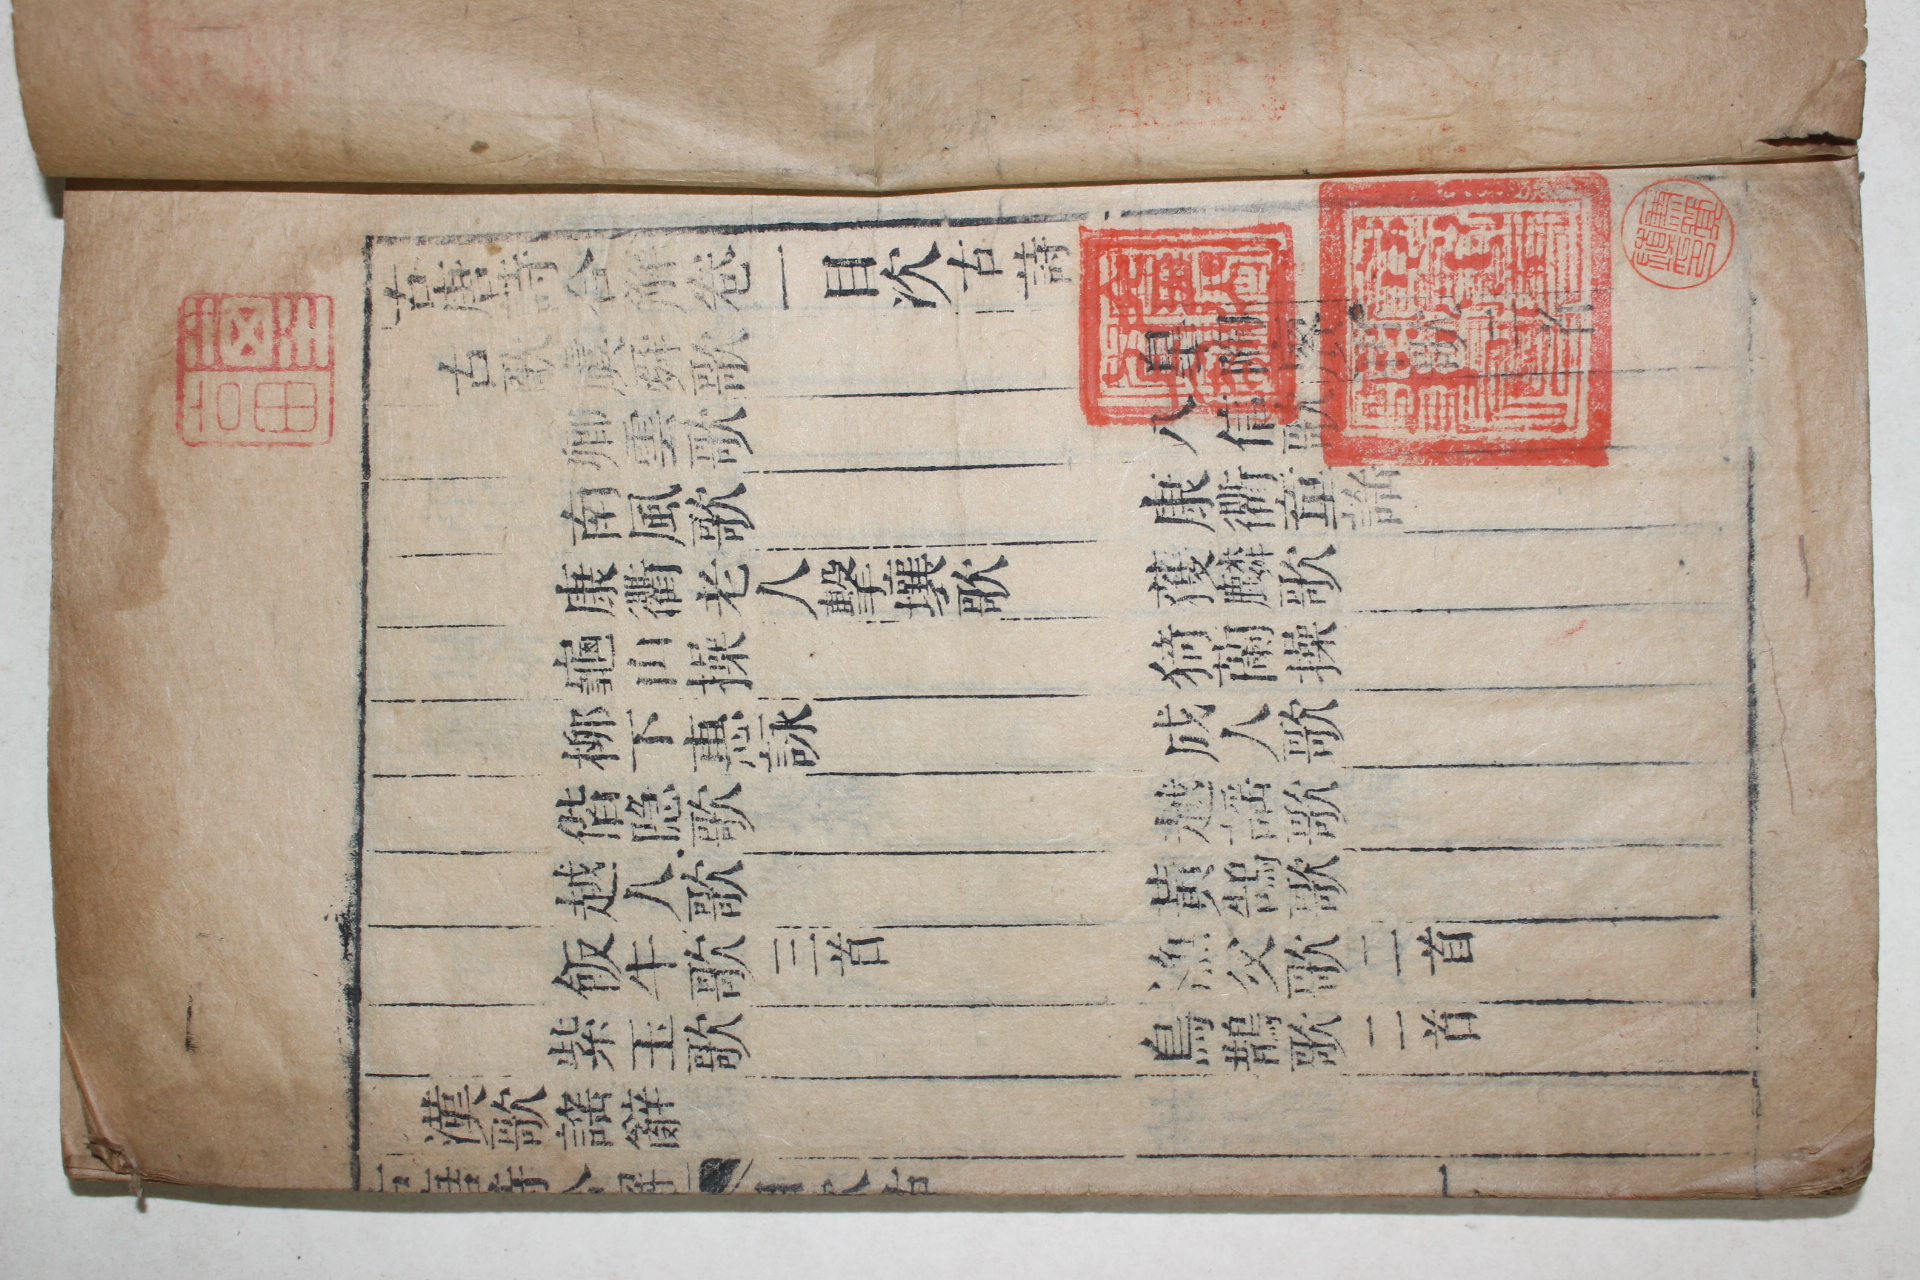 古唐詩合解卷一目次古詩
古歌
虞舜歌　皐陶賡歌
卿雲歌　八伯歌
南風歌　康衢童謠
康衢老人擊壤歌　獲麟歌
龜山操　猗蘭操
柳下惠詠　成人歌
偕隱歌　越謠歌
越人歌　黃鵠歌
飯牛歌三首　漁父歌二首
紫玉歌　烏鵲歌二首
漢歌謠辭
古唐詩合解
目次古
一
吉田